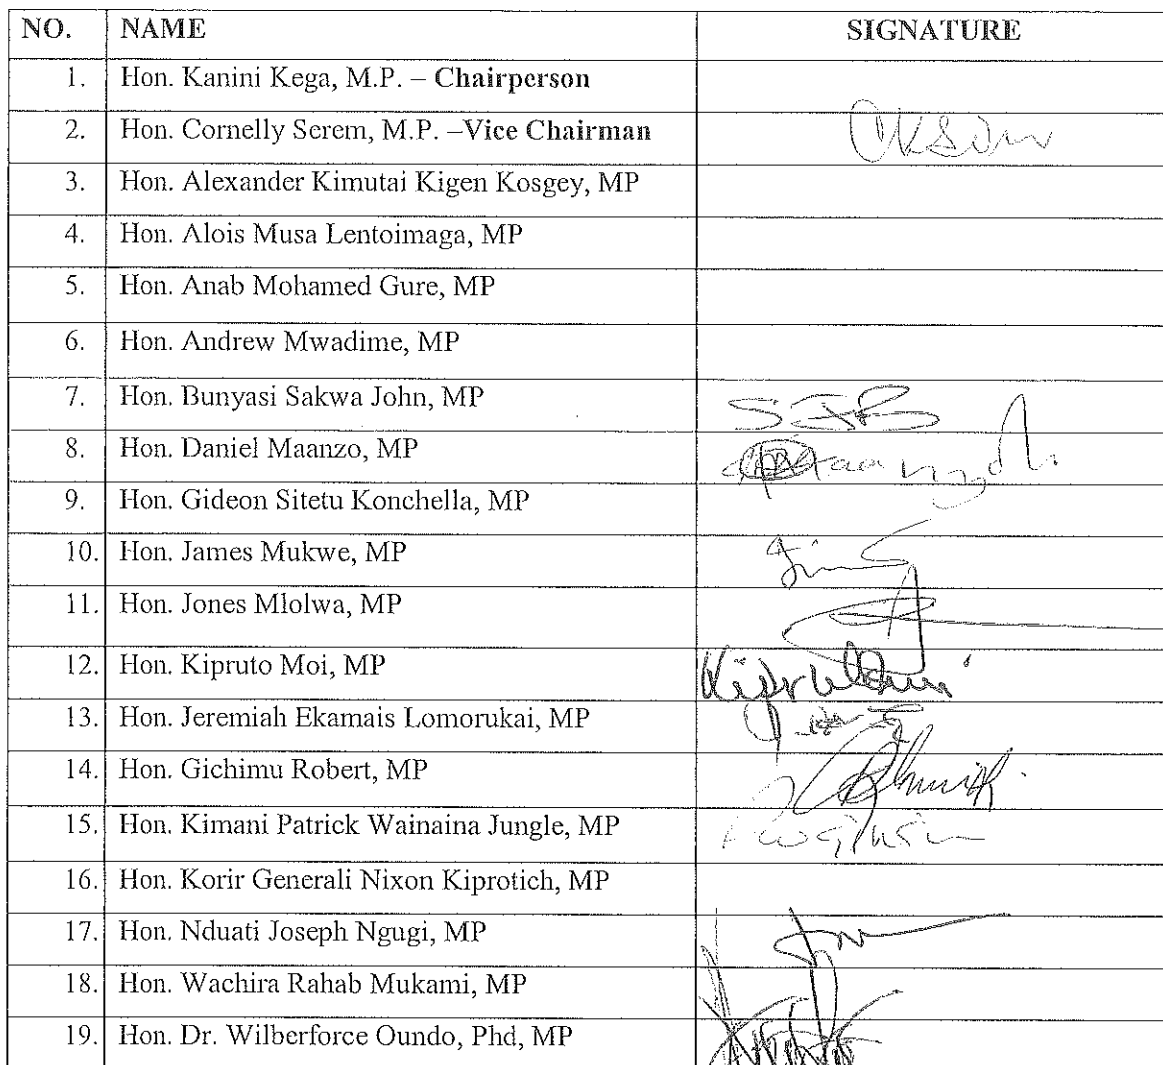 NO. NAME SIGNATURE
1. Hon. Kanini Kega, M.P. – Chairperson
2. Hon. Cornelly Serem, M.P. –Vice Chairman
3. Hon. Alexander Kimutai Kigen Kosgey, MP
4. Hon. Alois Musa Lentoimaga, MP
5. Hon. Anab Mohamed Gure, MP
6. Hon. Andrew Mwadime, MP
7. Hon. Bunyasi Sakwa John, MP SJB
8. Hon. Daniel Maanzo, MP
9. Hon. Gideon Sitetu Konchella, MP
10. Hon. James Mukwe, MP
11. Hon. Jones Mlolwa, MP
12. Hon. Kipruto Moi, MP
13. Hon. Jeremiah Ekamais Lomorukai, MP
14. Hon. Gichimu Robert, MP
15. Hon. Kimani Patrick Wainaina Jungle, MP
16. Hon. Korir Generali Nixon Kiprotich, MP
17. Hon. Nduati Joseph Ngugi, MP
18. Hon. Wachira Rahab Mukami, MP
19. Hon. Dr. Wilberforce Oundo, Phd, MP